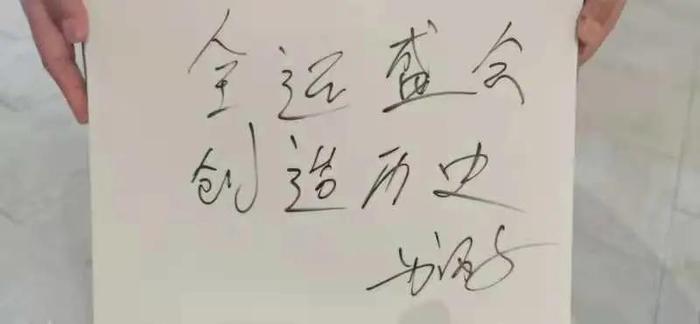 全运盛会
创造历史